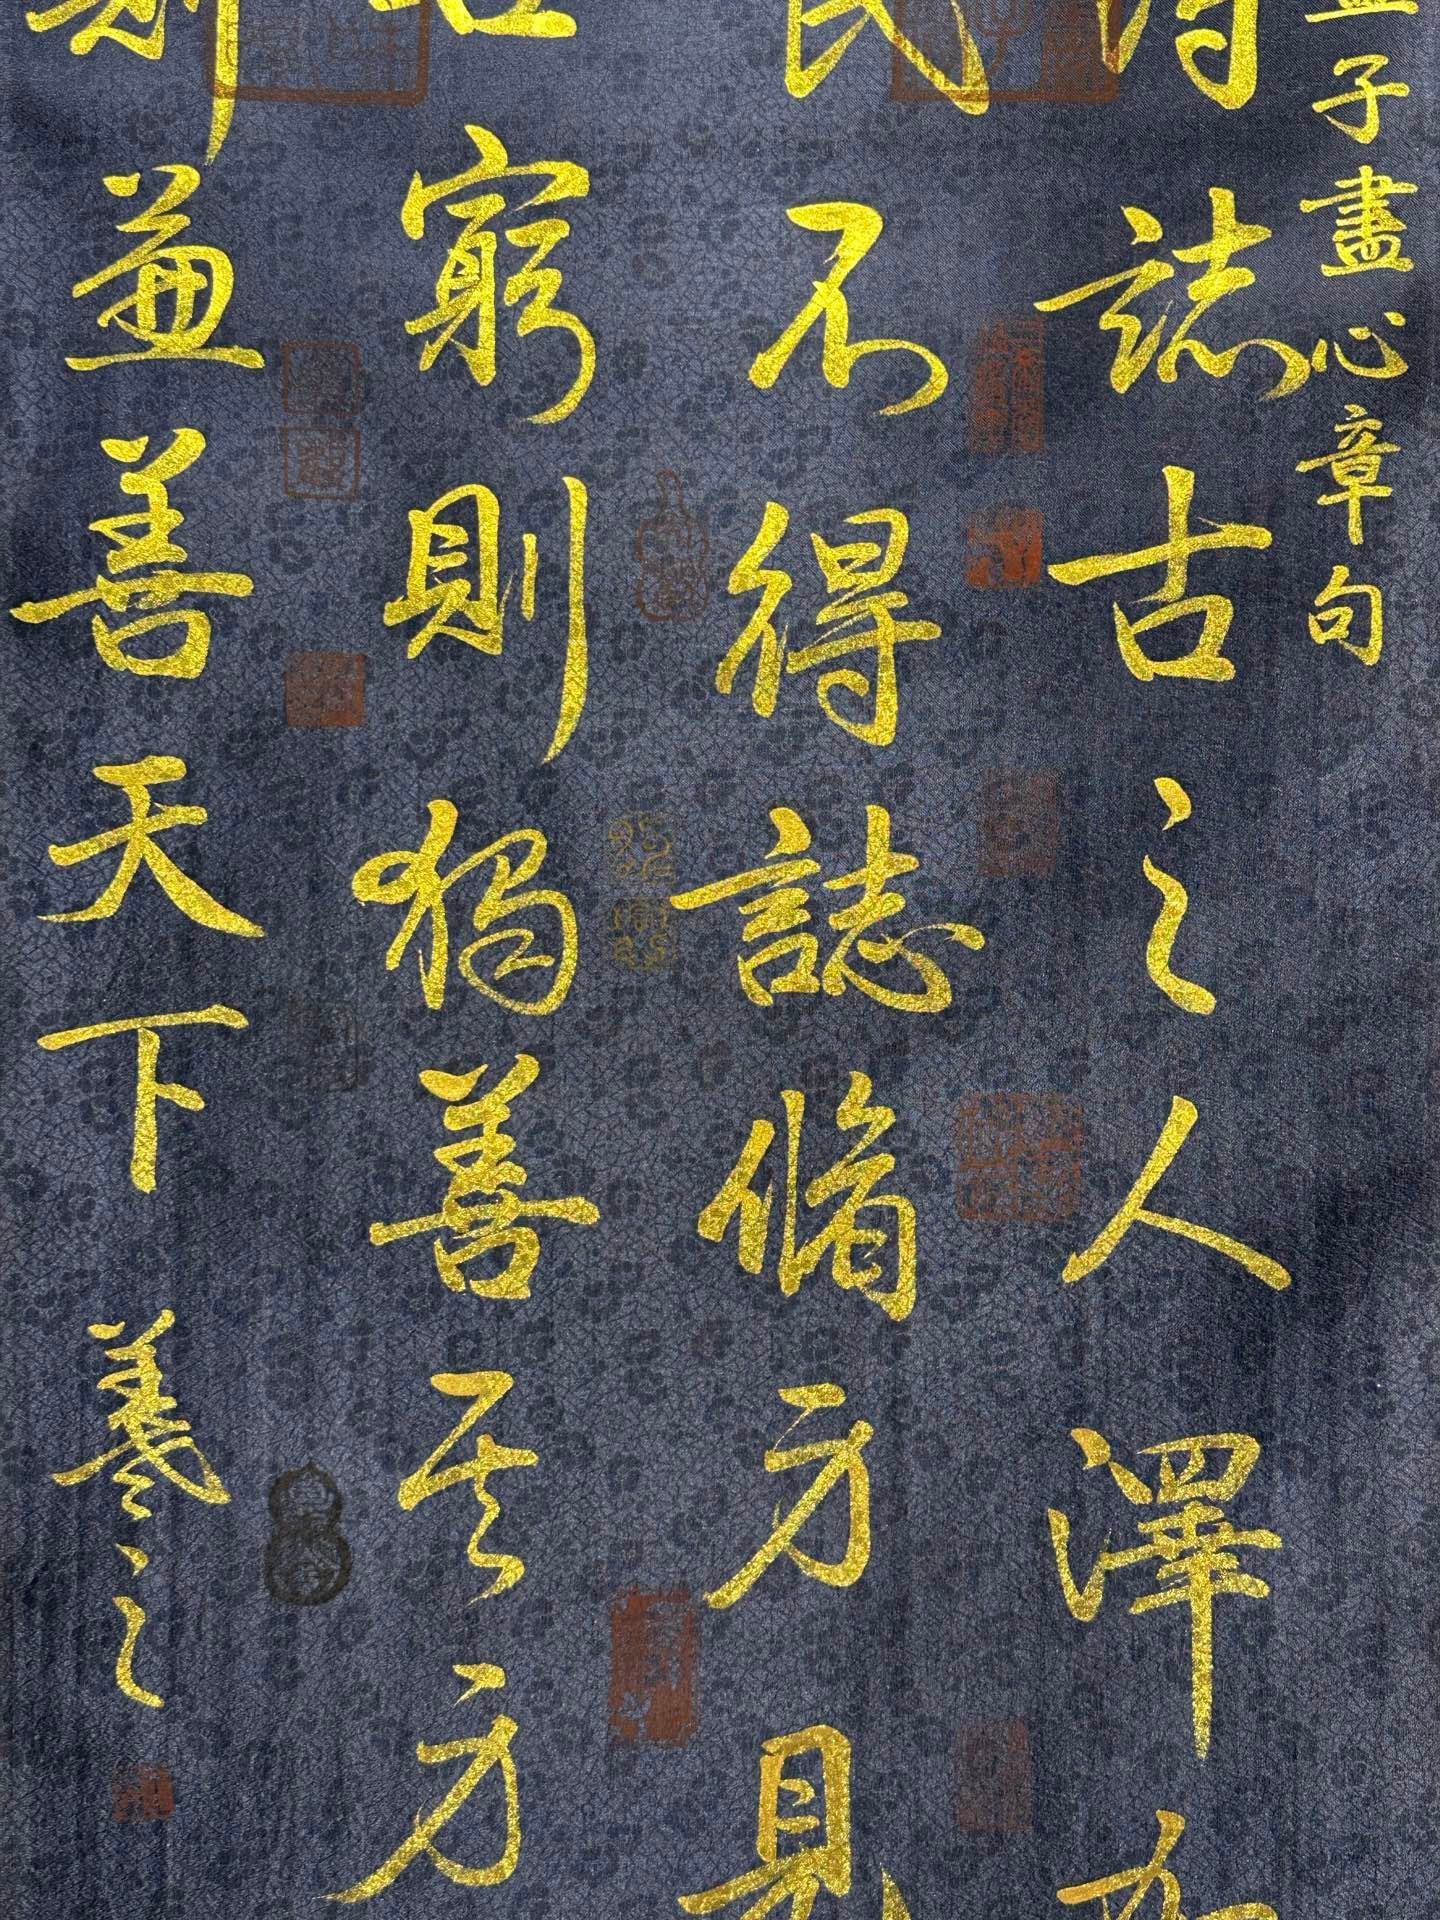 孟子盡心章句
得誌古之人澤加
民不得誌脩身見
世窮則獨善其身
則兼善天下
羲之